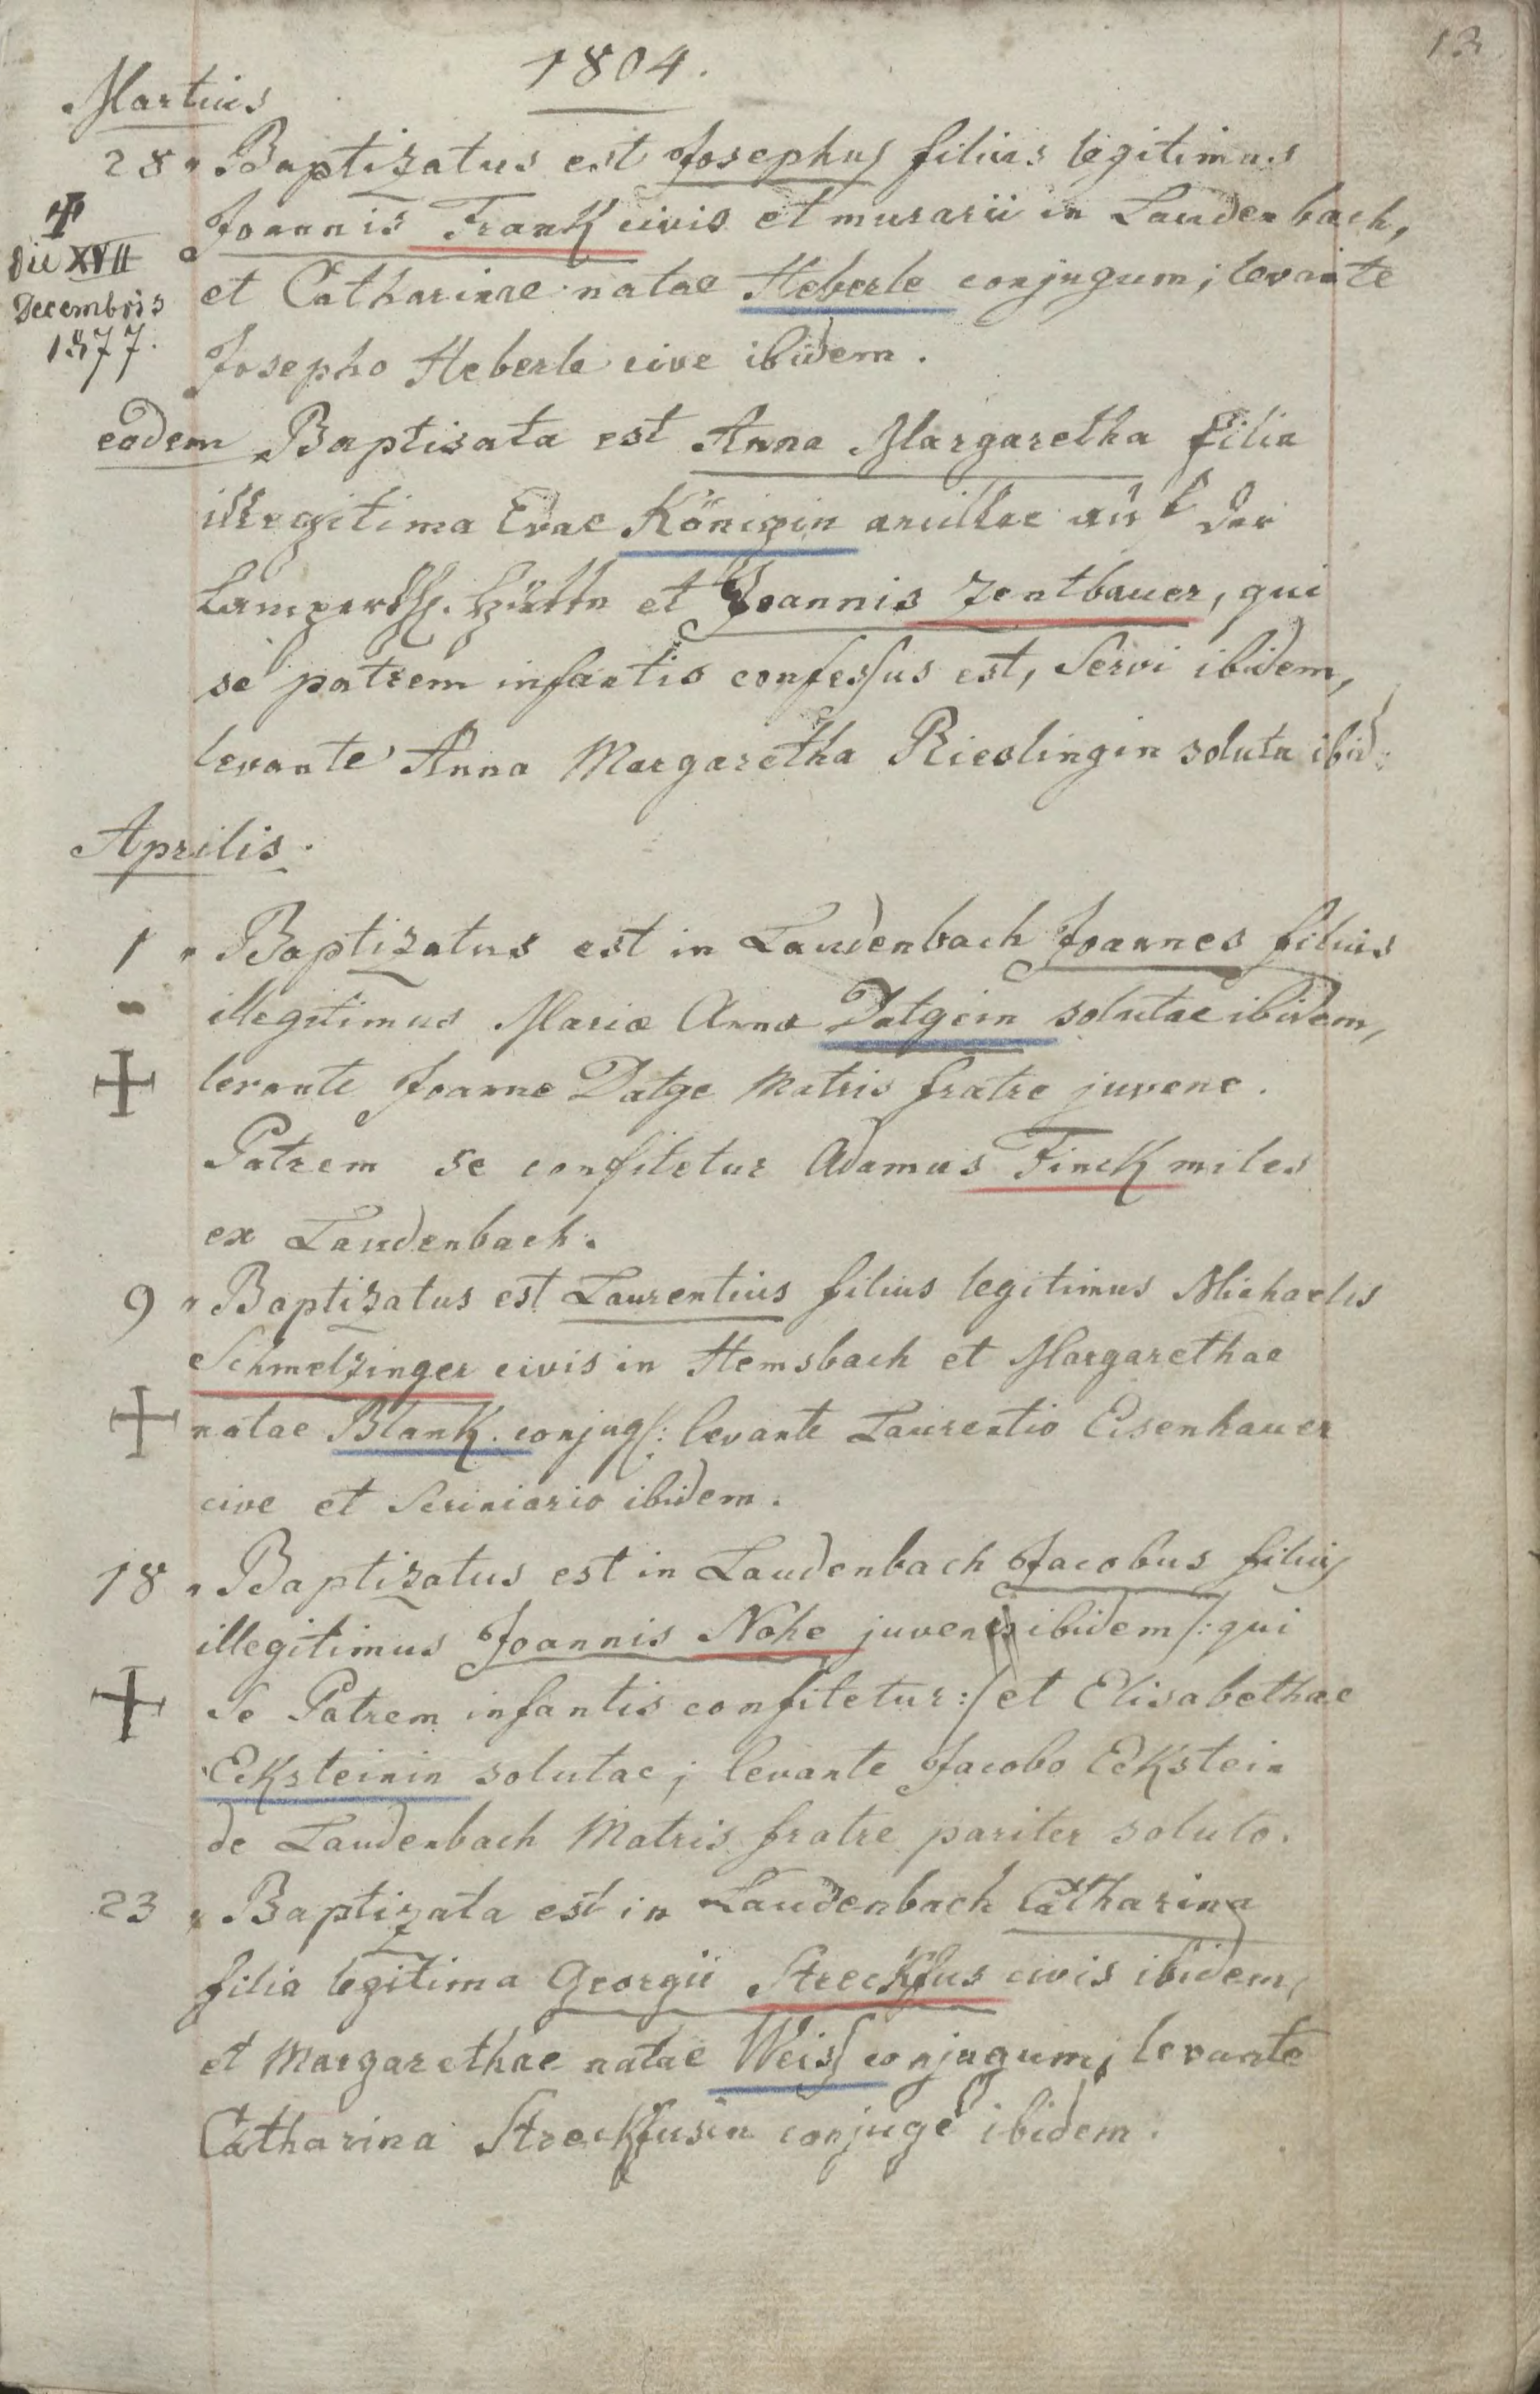 13
1804.
Martius
28 " Baptizatus est Josephus filius legitimus
Joannis Frank civis et murarii in Laudenbach,
✝
Die XVII
Decembris
1877.
et Catharinae natae Heberle conjugum; levante
Josepho Heberle cive ibidem.
eodem Baptisata est Anna Margaretha filia
illegitima Evae Königin ancillae auf der
et Joannis Zentbauer, qui
se patrem infantis confessus est, Servi ibidem,
levante Anna Margaretha Rieslingin soluta ibid:
Aprilis.
1 " Baptizatus est in Laudenbach Joannes filius
- illegitimus Maria Anna Datgein solutae ibidem,
levante Joanne Datge Matris fratre juvene.
Patrem se confitetur Adamus Finck miles
ex Laudenbach.
9 " Baptizatus est Laurentius filius legitimus Michaelis
Schmelzinger civis in Hemsbach et Margarethae
natae Blank. conjug: levante Laurentio Eisenhauer
cive et Scriniario ibidem.
18 " Baptizatus est in Laudenbach Jacobus filius
illegitimus Joannis Nohe juvenis ibidem /: qui
Se Patrem infantis confitetur :/ et Elisabethae
Ecksteinin solutae; levante Jacobo Eckstein
de Laudenbach Matris fratre pariter soluto.
23 " Baptizata est in Laudenbach Catharina
filia legitima Georgii Streckfus civis ibidem,
et Margarethae natae Weiss conjugum, levante
Catharina Streckfusin conjuge ibidem.